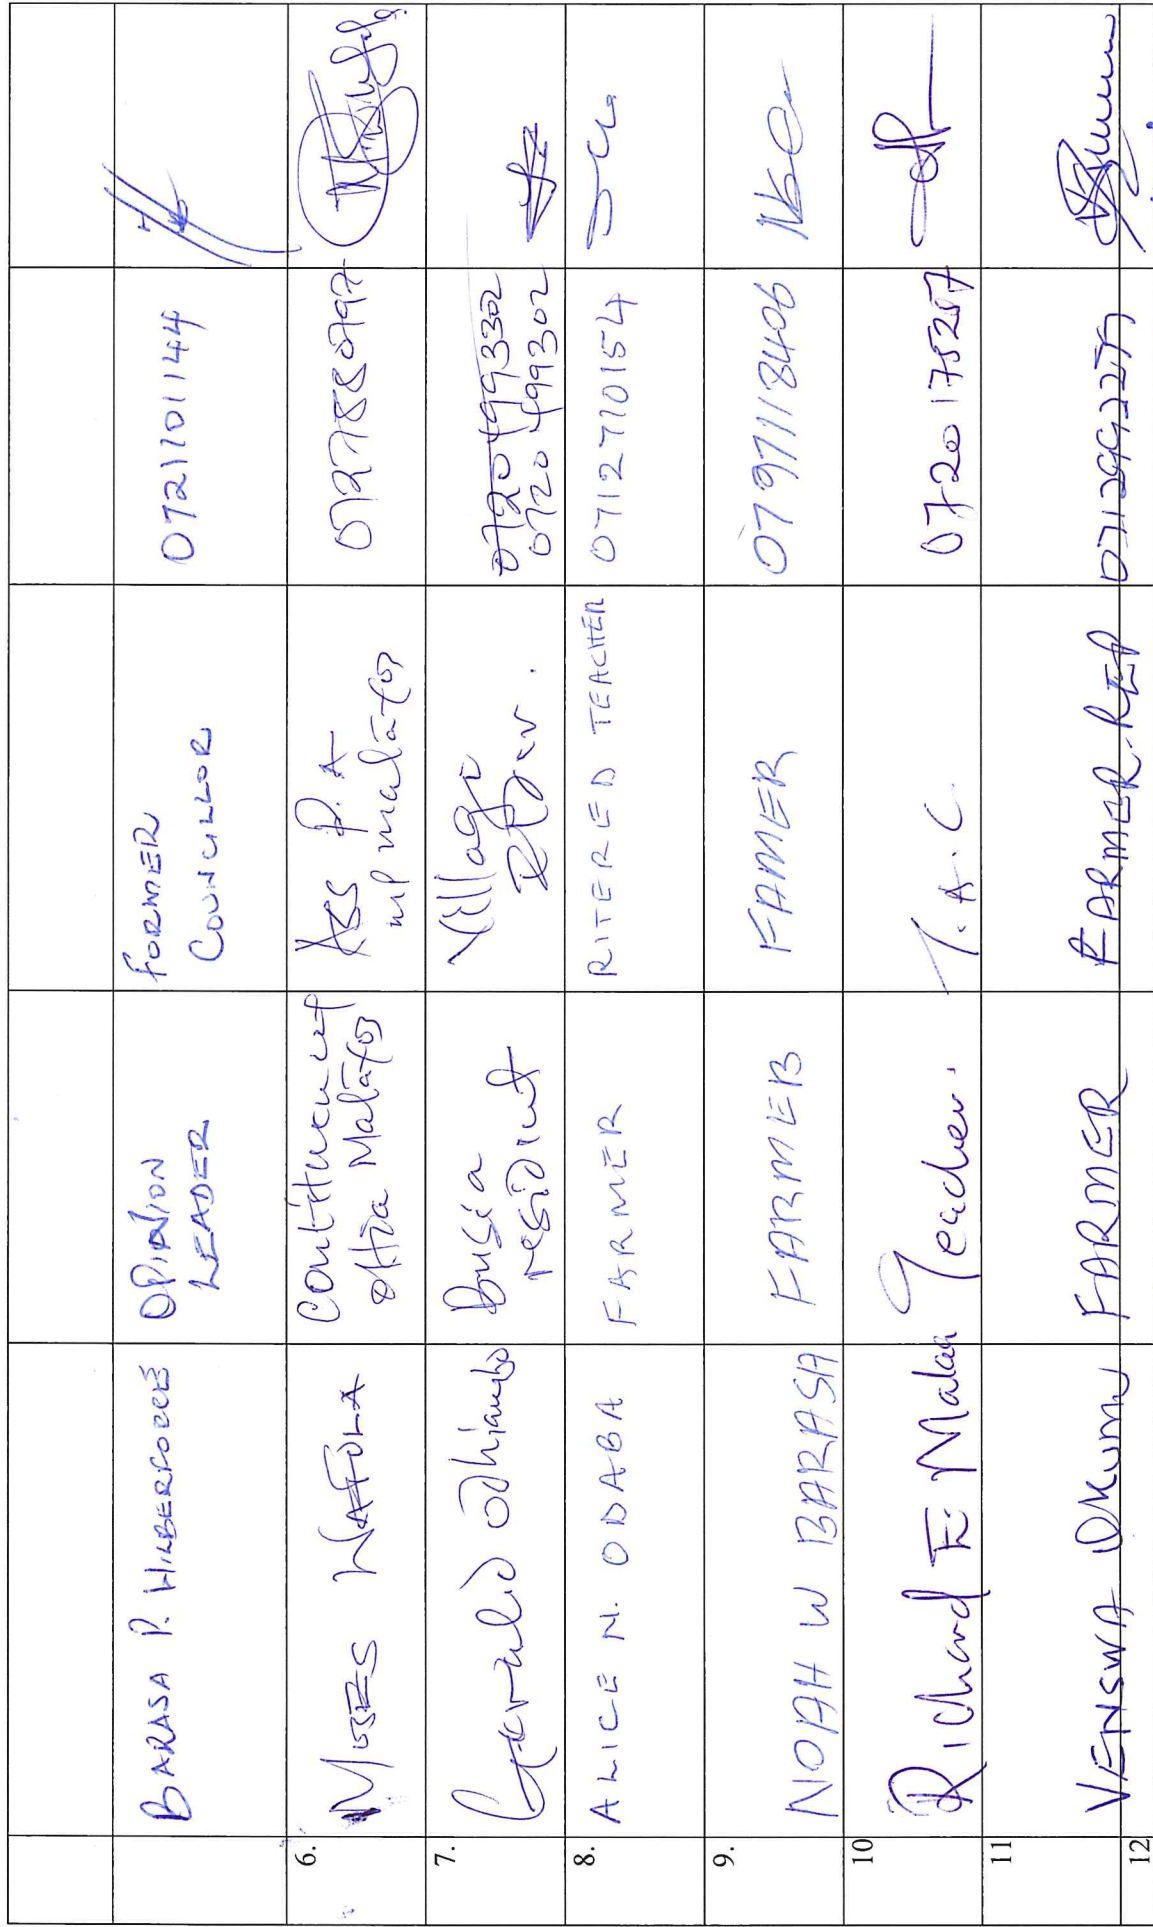 BARASA P. WILBERFORCE
OPINION
LEADER
FORMER
COUNCILLOR
0721101144
6.
MOSES WAFULA
Matayos
Ass P. A
MP Matayos
7.
Gerald Odhiambo
Busia
resident
Village
0720499302
0720499302
8.
ALICE N. ODABA
FARMER
RITERED TEACHER
0712770154
9.
NOAH W BARASA
FARMER
FAMER
0797118406
10
Richard
Teacher.
T.A.C
0720175257
11
VENSWA
FARMER
FARMER.REP
12